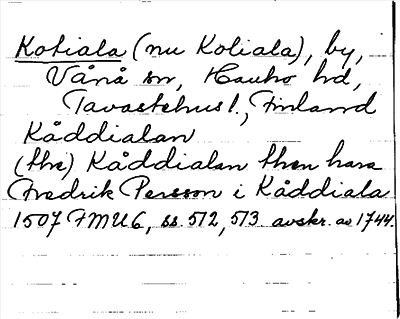 Kotiala (nu Koliala), by,
Vånå sn, Hauho hd,
Tavastehus l., Finland
Kåddialan
(the) Kåddialan then hava
Fredrik Persson i Kåddiala
1507 FMU 6, ss. 512, 513. avskr. av 1744.